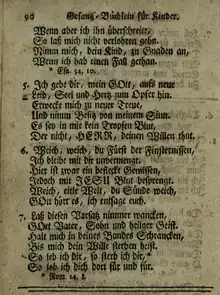 90 Gesang-Büchlein für Kinder.
Wenn aber ich ihn überschreit,
So laß mich nicht verlohren gehn.
Nimm mich, dein Kind, zu Gnaden an,
Wenn ich hab einen Fall gethan.
* Esa. 54, 10.
5. Ich gebe dir, mein GOtt, aufs neue
Leib, Seel und Hertz zum Opfer hin.
Erwecke mich zu neuer Treue,
Und nimm Besitz von meinem Sinn.
Es sey in mir kein Tropfen Blut,
Der nicht, HERR, deinen Willen thut.
6. Weich, weich, du Fürst der Finsternissen,
Ich bleibe mit dir unvermengt.
Hier ist zwar ein befleckt Gewissen,
Jedoch mit JESU Blut besprengt.
Weich, eitle Welt, du Sünde weich,
GOtt hört es, ich entsage euch.
7. Laß diesen Vorsatz nimmer wancken,
GOtt Vater, Sohn und heilger Geist.
Halt mich in deines Bundes Schrancken,
Bis mich dein Wille sterben heist.
So leb ich dir, so sterb ich dir,*
So lob ich dich dort für und für.
* Rom. 14, 8.